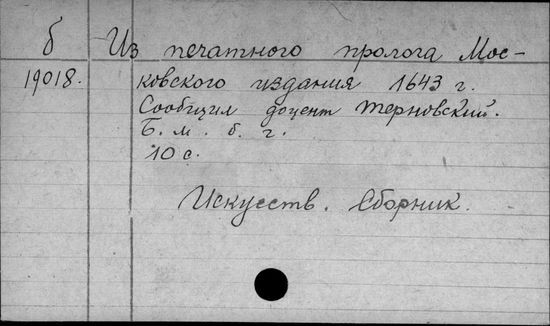 б Из печатного пролога Мос-
19018. ковского издания 1643 г.
Сообщил доцент Терновский.
Б. м. б. г.
10 с.
Искусств. Сборник.